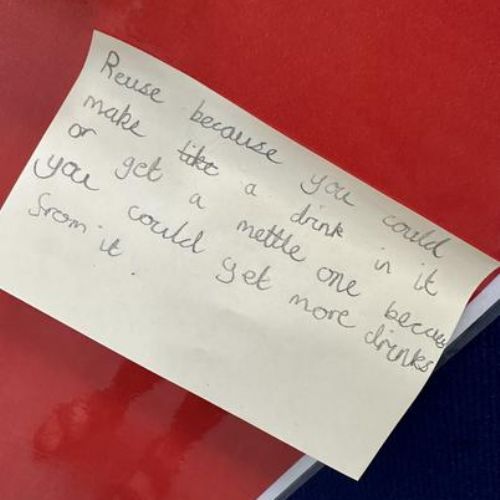 Reuse because you could
make like a drink in it
or get a mettle one because
you could get more drinks
from it.